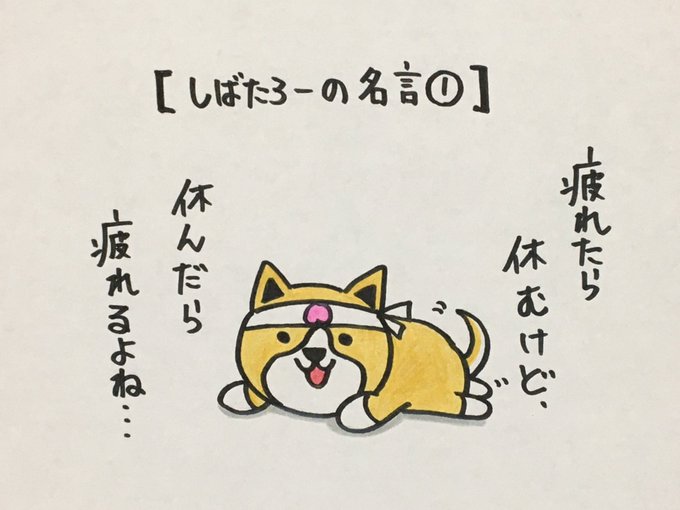 [しばたろーの名言①]
疲れたら
休むけど、
休んだら
疲れるよね…